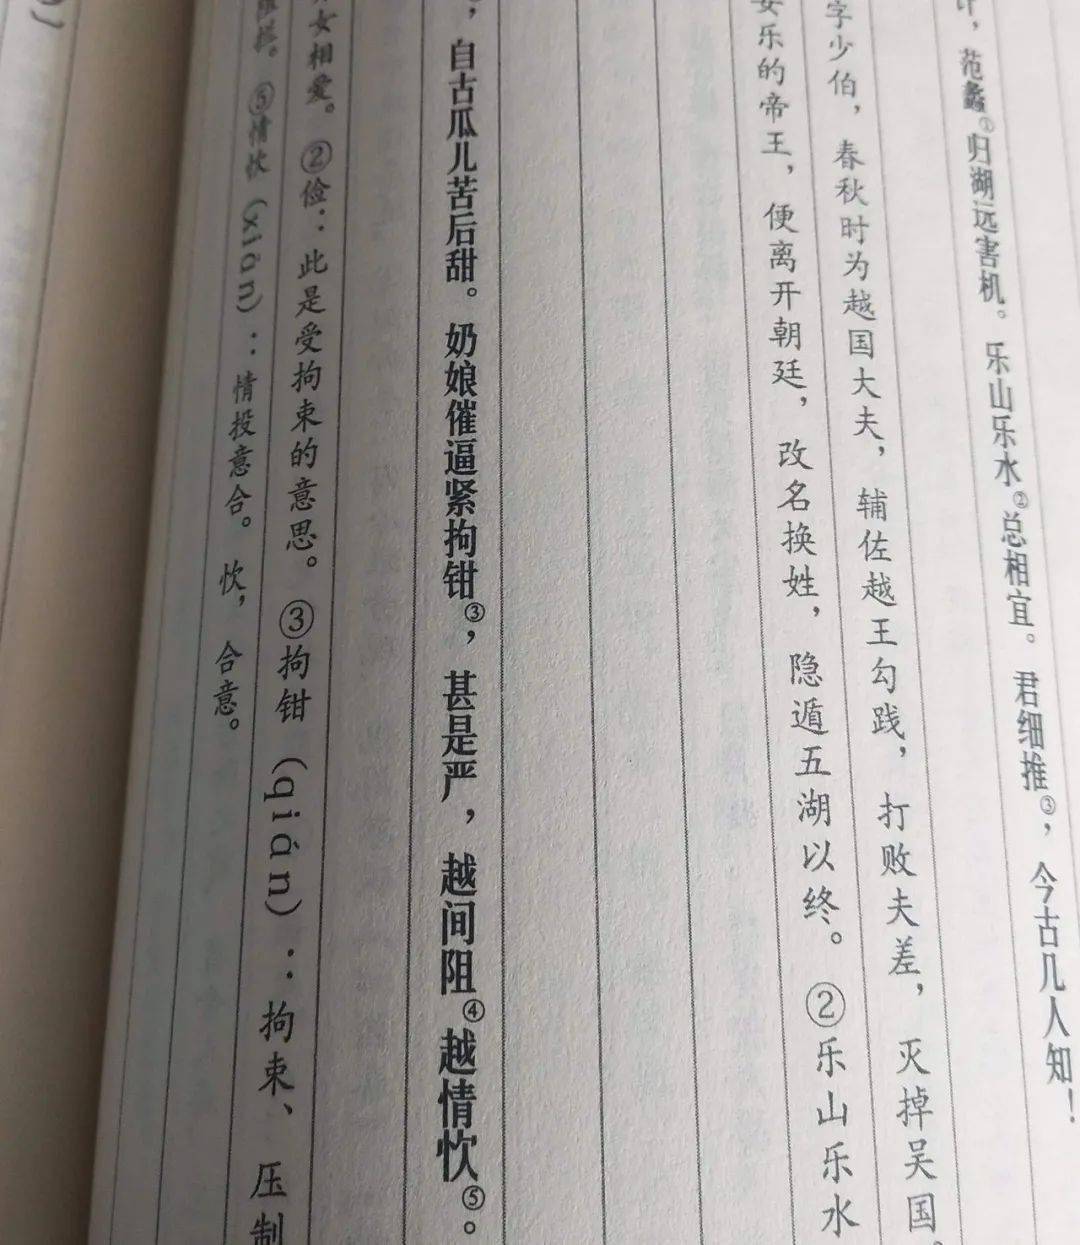 ，范蠡①归湖远害机。乐山乐水②总相宜。君细推③，今古几人知！
字少伯，春秋时为越国大夫，辅佐越王勾践，打败夫差，灭掉吴国。
安乐的帝王，便离开朝廷，改名换姓，隐遁五湖以终。②乐山乐水
，自古瓜儿苦后甜。奶娘催逼紧拘钳③，甚是严，越间阻④越情忺⑤。
女相爱。②俭：此是受拘束的意思。③拘钳（qián）：拘束、压制
⑤情忺（xiān）：情投意合。忺，合意。